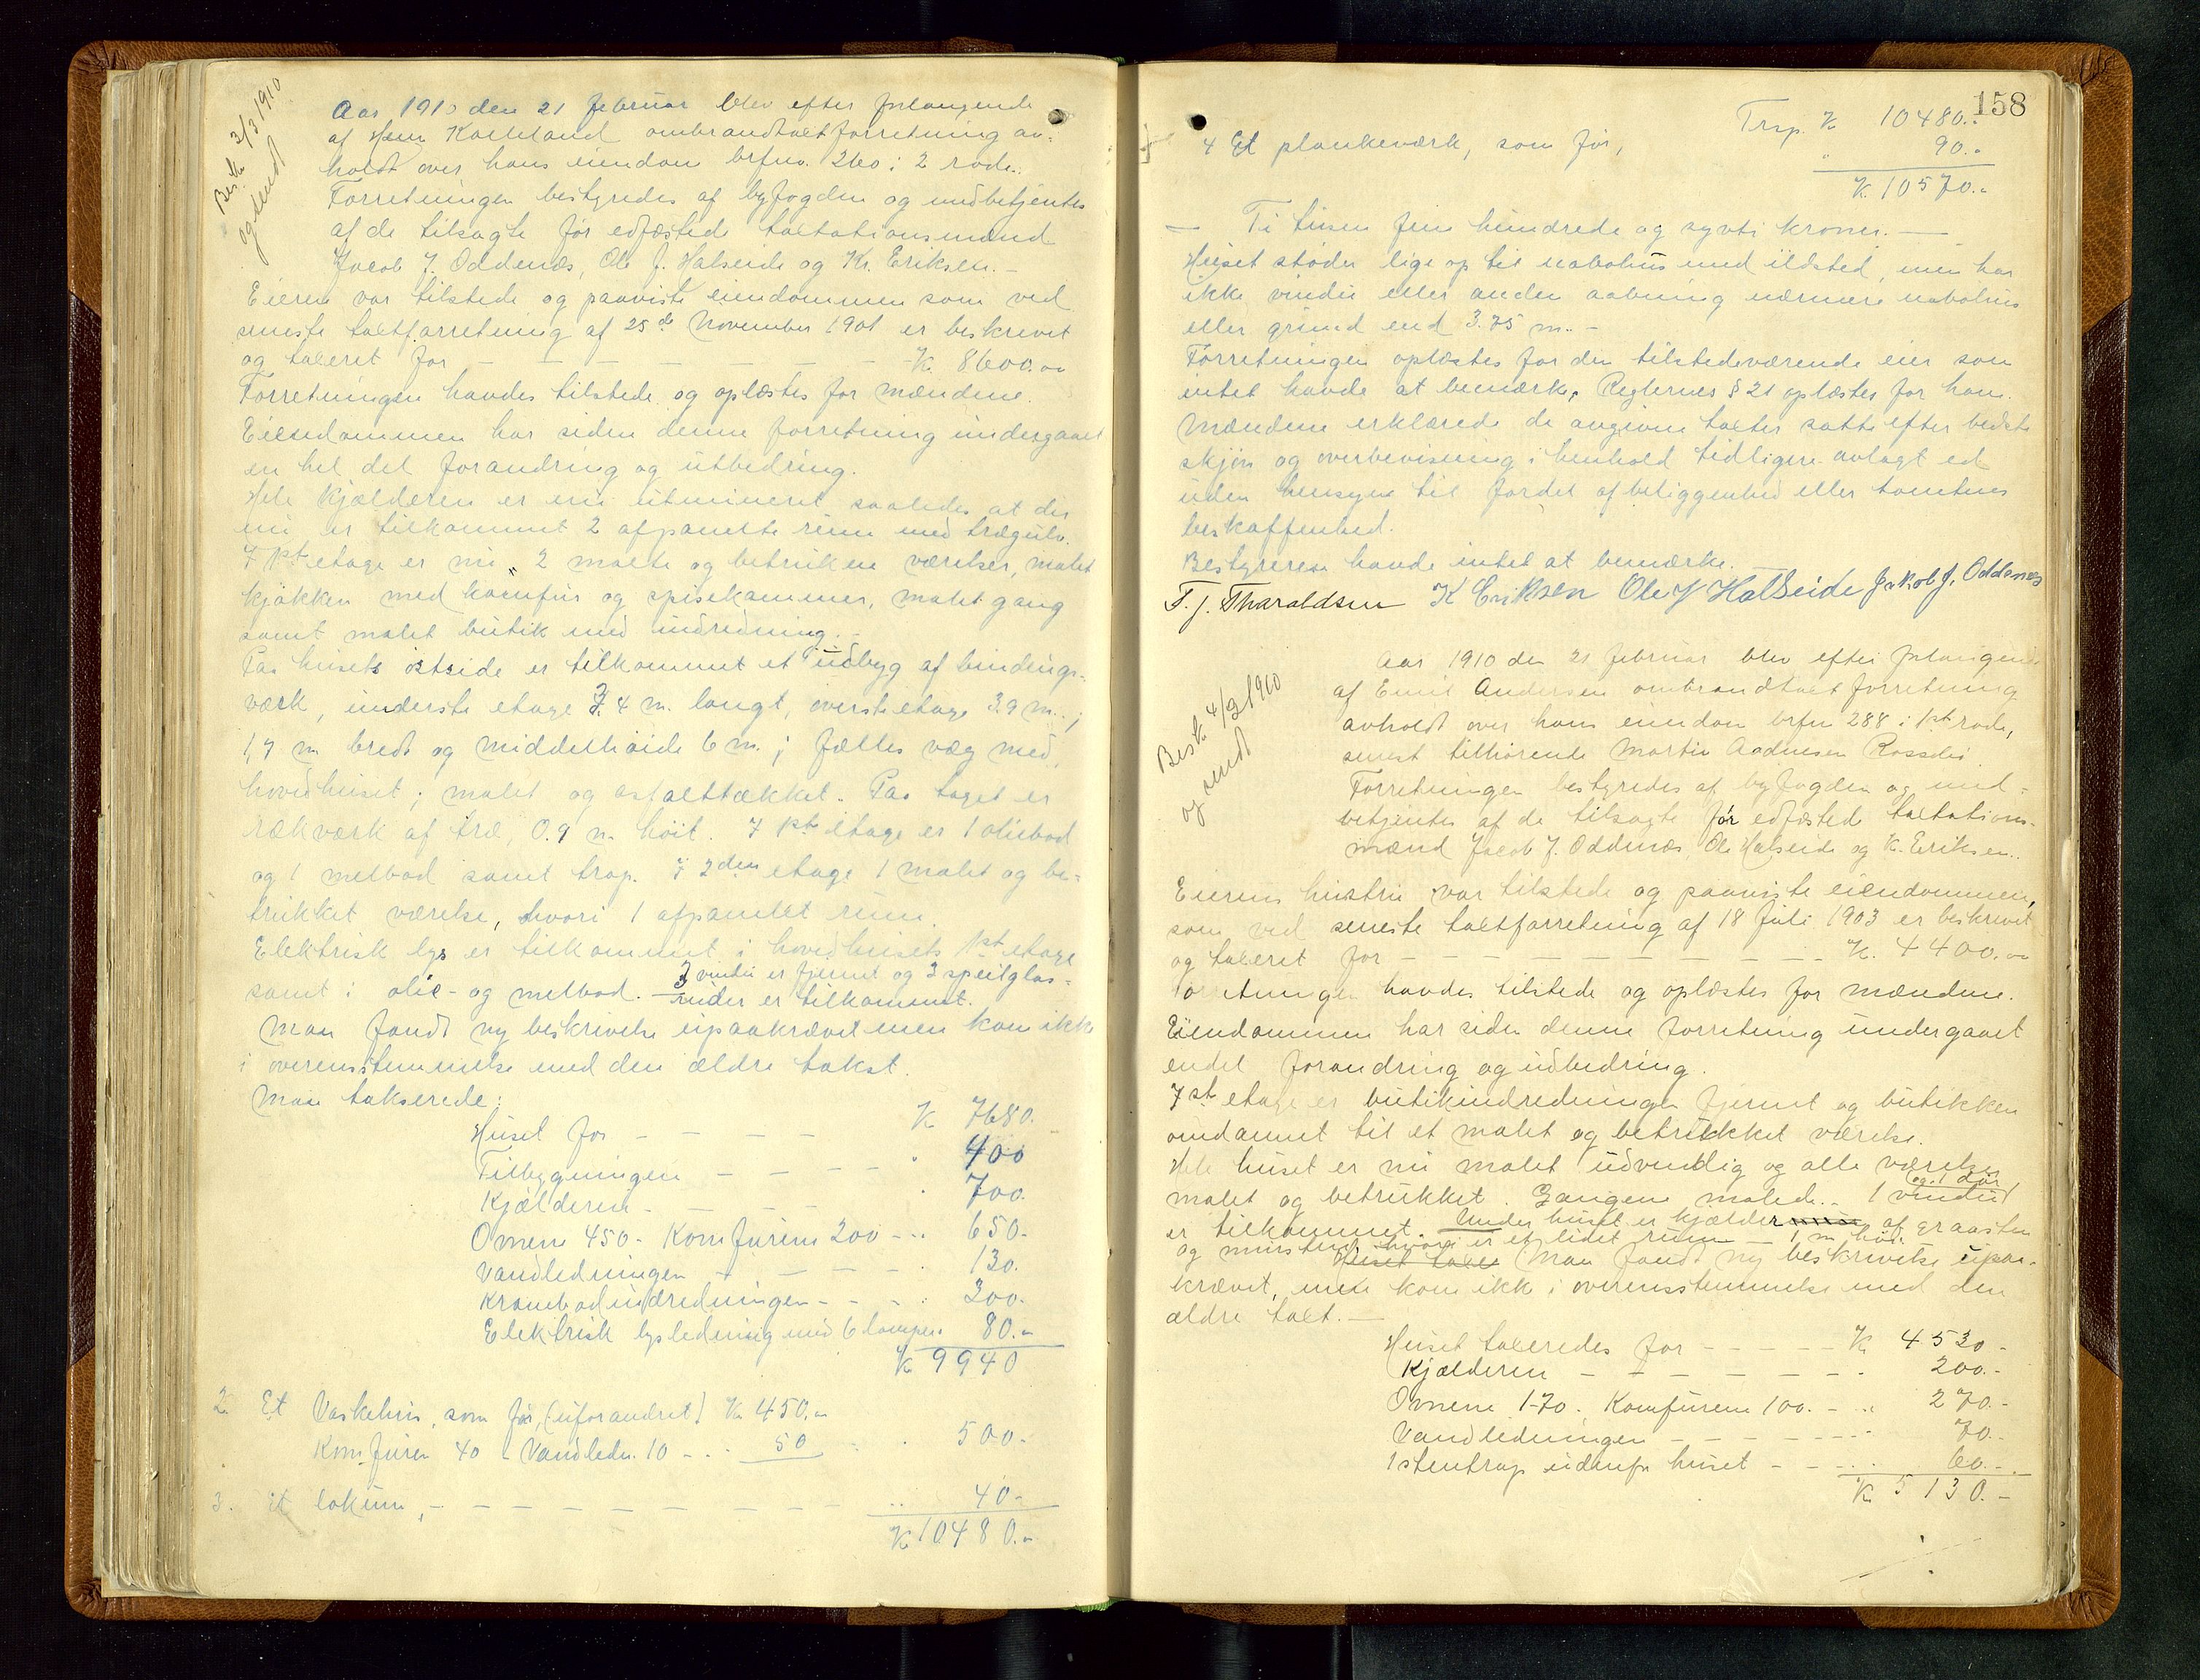 Besk. 3/3 1910
og sendt
Aar 1910 den 21 februar blev efter forlangende
af Herm Karleland ombrandtaxtforretning av-
holdt over hans eiendom brfnr. 260 i 2 rode.
Forretningen bestyredes af byfogden og medbetjentes
af de tilsagte før edfæstede taxtationsmænd
Jacob J. Oddenæs, Ole J. Halseide og Kr. Eriksen. -
Eieren var tilstede og paaviste eiendommen som ved
seneste taxtforretning af 25de November 1901 er beskrevet
og taxeret for - - - - - - - K. 8600.00
Forretningen havdes tilstede og oplæstes for mændene.
Eiendommen har siden denne forretning undergaaet
en hel del forandring og utbedring.
Hele kjælderen er nu utmineret saaledes at der
nu er tilkommet 2 afpanelte rum med trægulv.
I 1ste etage er nu 2 malte og betrukne værelser, malet
kjøkken med komfur og spisekammer, malet gang
samt malet butik med indredning. -
Paa husets østside er tilkommet et udbyg af bindings-
værk, underste etage 7.4 m. langt, øverste etage 3.9 m.;
1,7 m bredt og middelhøide 6 m.; fælles væg med
hovedhuset; malet og asfalttækket. Paa taget er
rækværk af træ, 0.9 m. høit. I 1ste etage er 1 oliebod
og 1 melbod samt trap. I 2den etage 1 malet og be-
trukket værelse, hvori 1 afpanelet rum.
Elektrisk lys er tilkommet i hovedhusets 1ste etage
samt i olie- og melbod. 3 vinduer er fjernet og 3 speilglas-
ruder er tilkommet.
Man fandt ny beskrivelse upaakrævet men kom ikke
i overensstemmelse med den ældre takst.
Man takserede:
Huset for - - - - K 7680.-
Tilbygningen - - - - " 400
Kjælderen - - - " 700.
Ovnene 450 - Komfurene 200 - - " 650-
Vandledningen - - - - " 130.
Krambodindredningen - - - " 300.
Elektrisk lysledning med 6 lamper " 80.-
K 9940
2. Et Vaskehus, som før, (uforandret) K 450.-
Komfuren 40 - Vandledn. 10 - - " 50 " 500-
3. Et lokum, - - - - - - - " 40-
K 10480.-
158
Trsp. K 10480.-
4 Et plankeværk, som før, " 90.-
K 10570.-
— Ti tusen fem hundrede og sytti kroner. —
Huset støder lige op til nabohus med ildsted, men har
ikke vindu eller anden aabning nærmere nabohus
eller grund end 3.75 m. -
Forretningen oplæstes for den tilstedeværende eier som
intet havde at bemærke, Reglernes § 21 oplæstes for ham.
Mændene erklærede de angivne taxter satte efter bedste
skjøn og overbevisning i henhold tidligere avlagt ed
uden hensyn til fordel af beliggenhed eller tomtens
beskaffenhed.
Bestyreren havde intet at bemærke.
T. J. Tharaldsen K Eriksen Ole J Halseide Jakob J. Oddenæs
Besk. 4/3 1910
og sendt
Aar 1910 den 21 februar blev efter forlangende
af Emil Andersen ombrandtaxtforretning
avholdt over hans eiendom brfnr 288 i 1ste rode,
senest tilhørende Martin Aadnesen
Forretningen bestyredes af byfogden og med-
betjentes af de tilsagte før edfæstede taxtations-
mænd Jacob J. Oddenæs, Ole Halseide og K. Eriksen.
Eierens hustru var tilstede og paaviste eiendommen,
som ved seneste taxtforretning af 18 Juli 1903 er beskrevet
og taxeret for - - - - - - - - K. 4400.00
Forretningen havdes tilstede og oplæstes for mændene.
Eiendommen har siden denne forretning undergaaet
endel forandring og udbedring.
I 1ste etage er butikindredningen fjernet og butikken
omdannet til et malet og betrukket værelse.
Hele huset er nu malet udvendig og alle værelser
malet og betrukket. Gangene malede. - 1 vindu og 1 dør
er tilkommet. Under huset er kjælder af graasten
og mursten, hvori er et lidet rum - 1 m høi.
Huset taxer Man fandt ny beskrivelse upaa-
krævet, men kom ikke i overensstemmelse med den
ældre taxt. —
Huset taxeredes for - - - - - K 4530-
Kjælderen - - - - - - " 200.-
Ovnene 170. Komfurene 100. - " 270.-
Vandledningen - - - - - " 70.-
1 stentrap udenfor huset - - " 60.-
K 5130.-